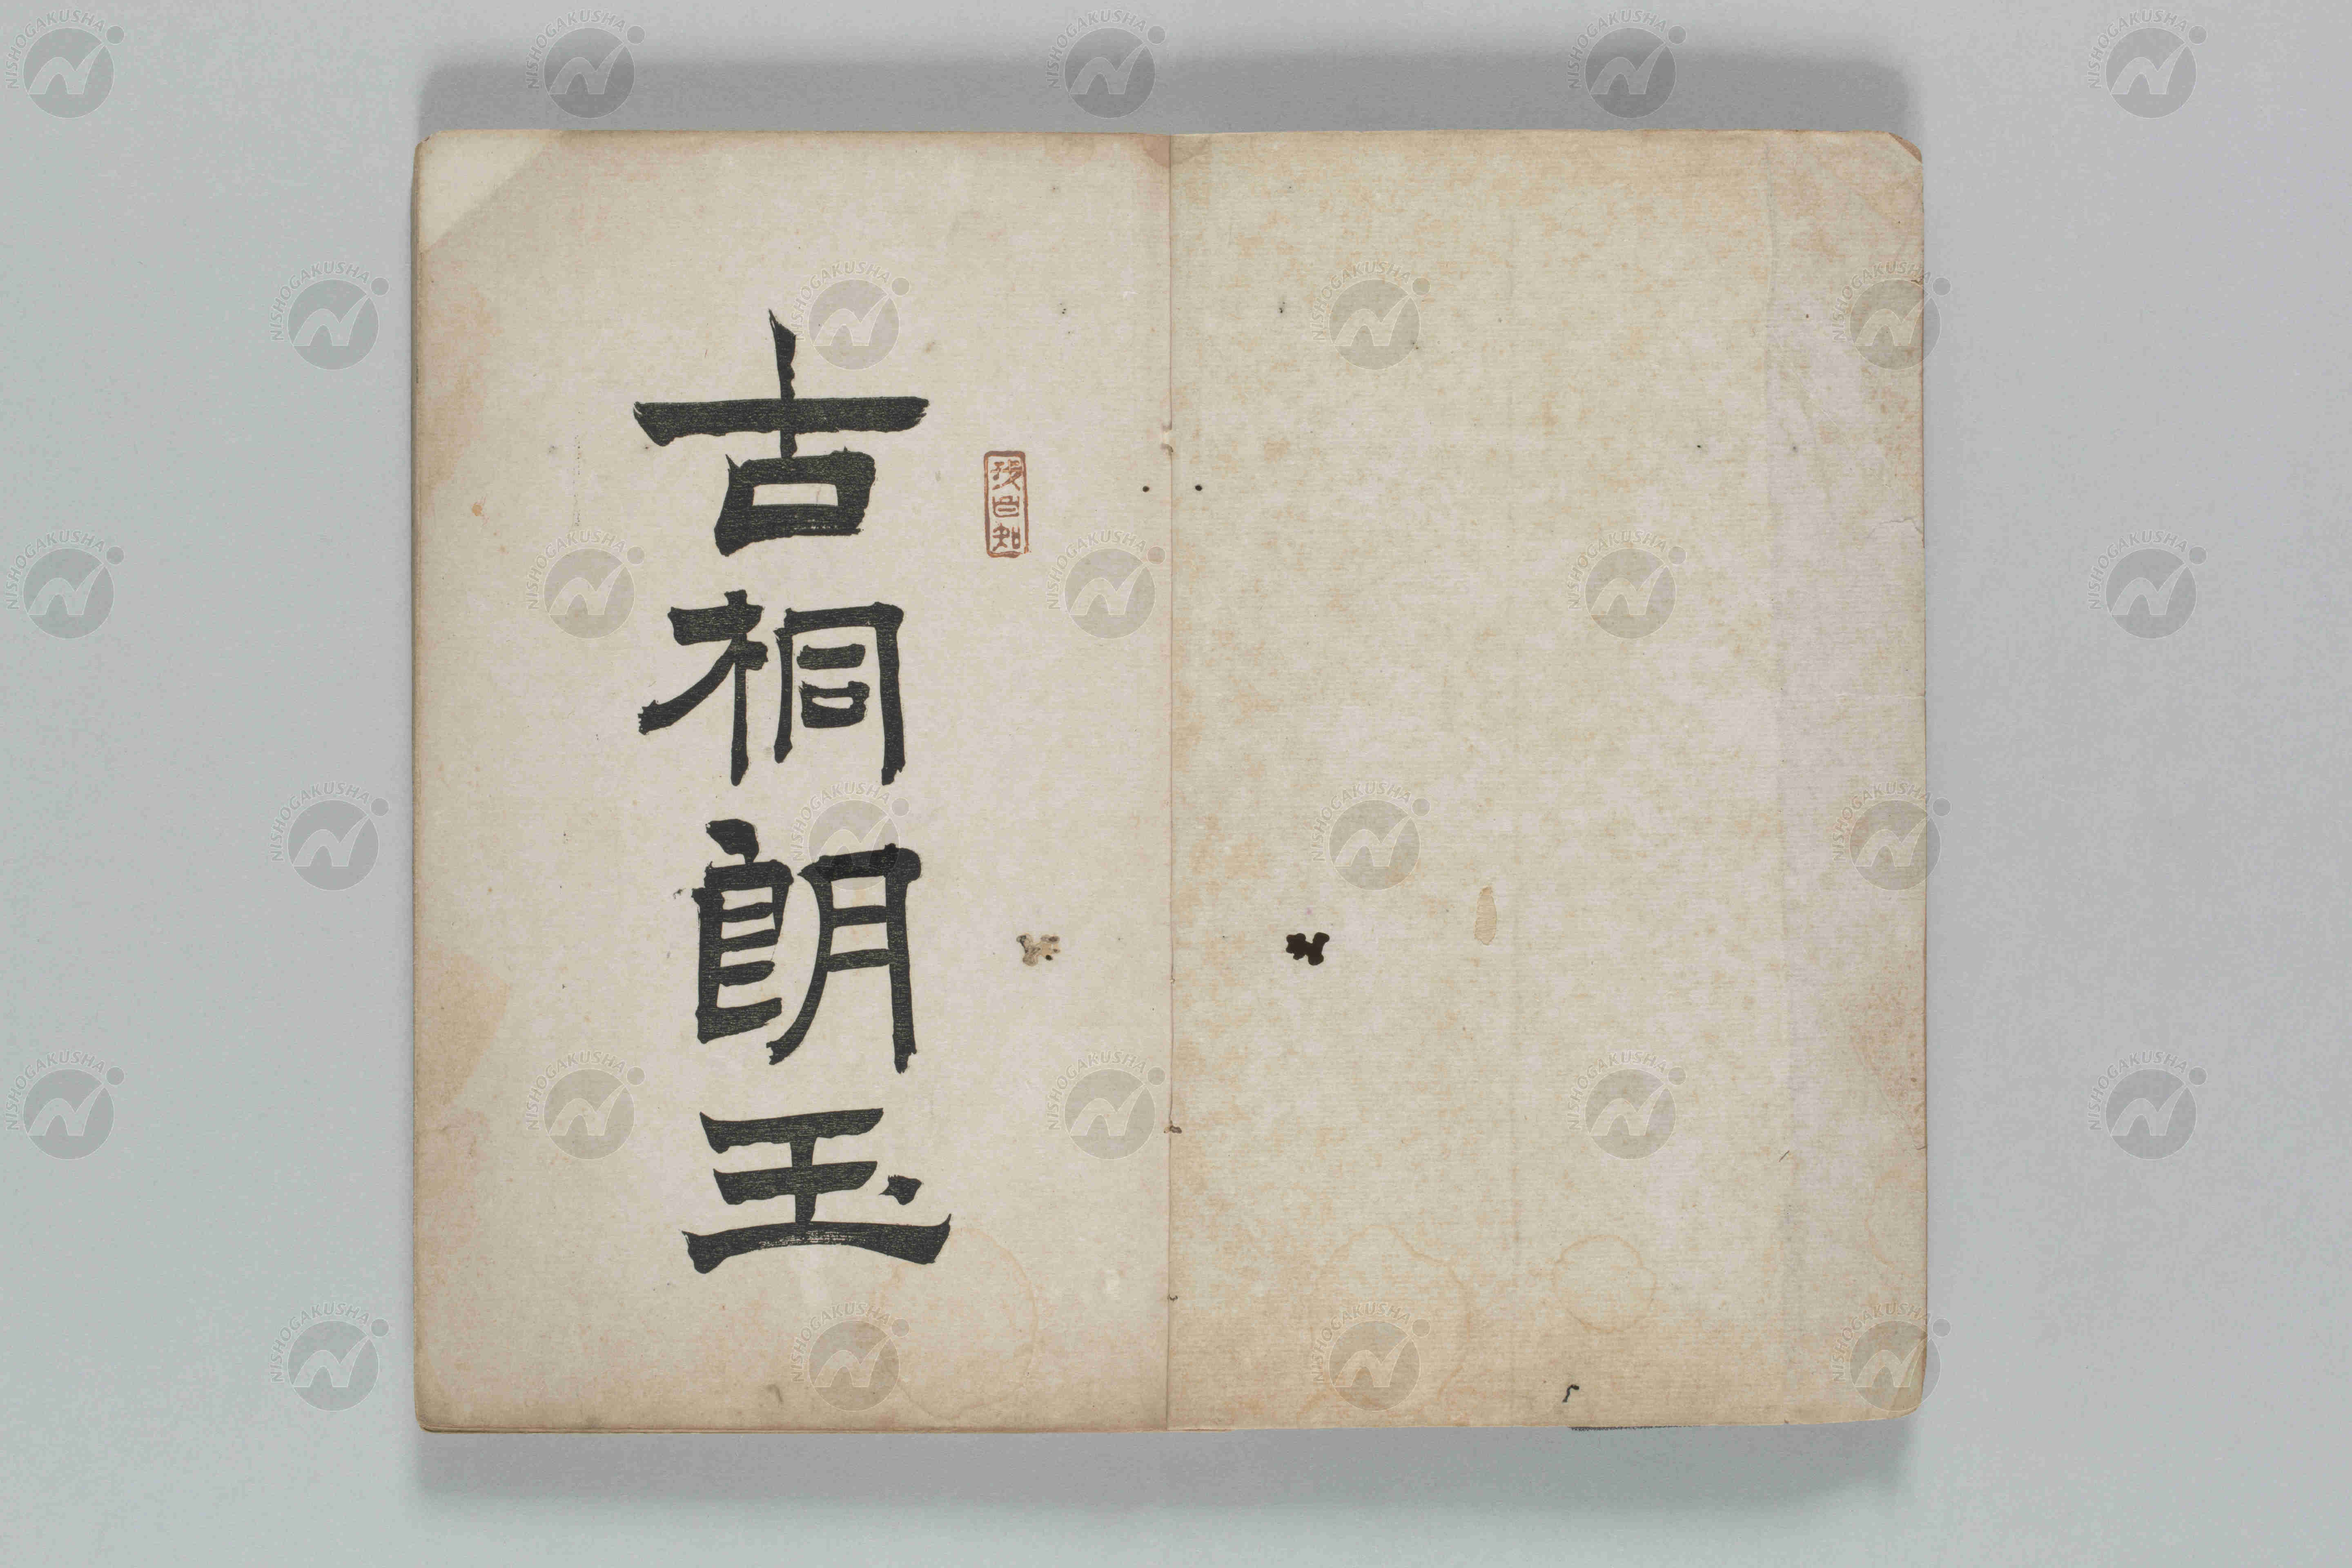 古桐朗玉
NISHOGAKUSHA